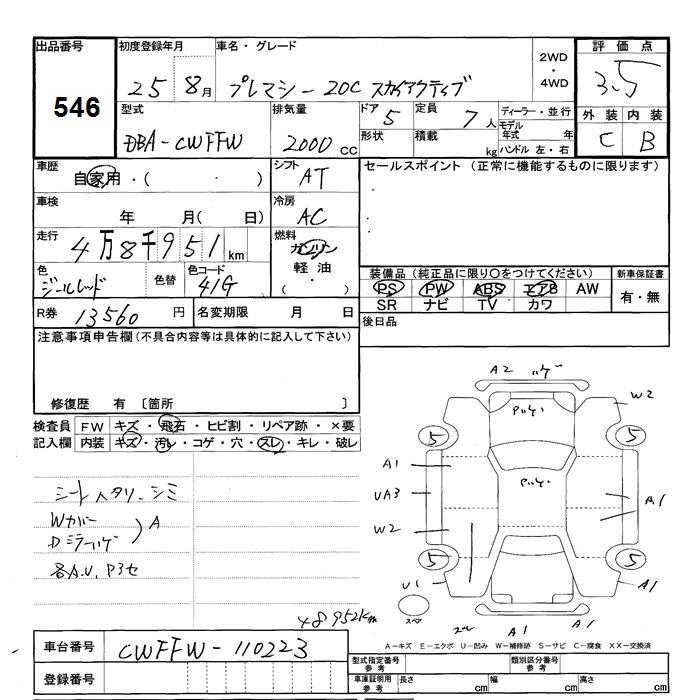 出品番号 初度登録年月 車名・グレード 2WD・4WD 評価点
546 25 8月 プレマシー 20C スカイアクティブ 3.5
型式 排気量 ドア 5 定員 7人 ディーラー・並行 外装 内装
DBA-CWFFW 2000cc 形状 積載 kg モデル年式 年 ハンドル 左・右 C B
車歴 自家用・( ・ ) シフト AT セールスポイント (正常に機能するものに限ります)
車検 年 月( 日) 冷房 AC
走行 4万8千951km 燃料 ガソリン
軽油
・( )
色 色替 色コード 41G
装備品 (純正品に限り○をつけてください) 新車保証書
PS PW ABS エアB AW 有・無
SR ナビ TV カワ
R券 13560円 名変期限 月 日 後日品
注意事項申告欄(不具合内容等は具体的に記入して下さい)
修復歴 有 〔箇所 〕
検査員 FW キズ・飛石・ヒビ割・リペア跡・×要
記入欄 内装 キズ・汚レ・コゲ・穴・スレ・キレ・破レ
シート ヘタリ シミ
Wカバー
Dミラーハゲ
A
各A.U.
A2 ハゲ
W2
5 5
A1
UA3
W2
A1
5 5
U1
A1
スペア
A1 A1
48952km
A-キズ E-エクボ U-凹み W-補修跡 S-サビ C-腐食 XX-交換済
車台番号 CWFFW-110223
登録番号
型式指定番号 参考 類別区分番号 参考
車庫証明用 参考 長さ cm 幅 cm 高さ cm